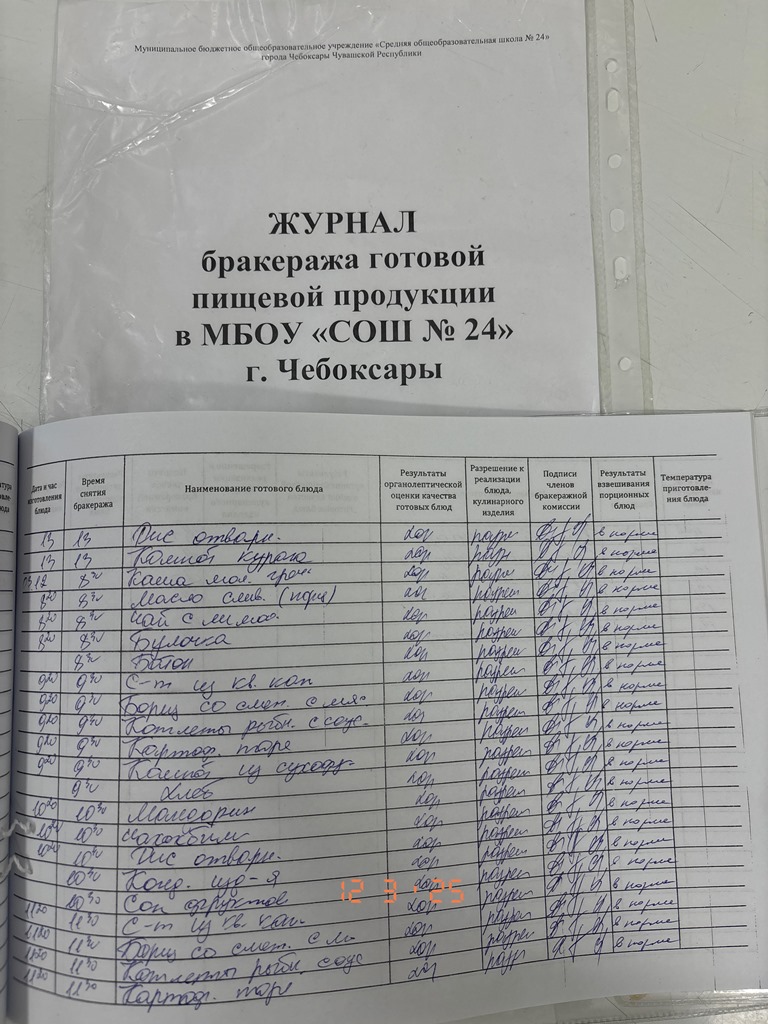 Муниципальное бюджетное общеобразовательное учреждение «Средняя общеобразовательная школа № 24»
города Чебоксары Чувашской Республики
ЖУРНАЛ
бракеража готовой
пищевой продукции
в МБОУ «СОШ № 24»
г. Чебоксары
Дата и час изготовления блюда Время снятия бракеража Наименование готового блюда Результаты органолептической оценки качества готовых блюд Разрешение к реализации блюда, кулинарного изделия Подписи членов бракеражной комиссии Результаты взвешивания порционных блюд Температура приготовле- ния блюда
13 13 Рис отварн. хор разр в норме
13 13 Компот курага хор разр в норме
03.12 8 30 Каша мол. греч хор разр в норме
8 20 8 30 Масло слив. (порц) хор разреш в норме
8 20 8 30 Чай с лимон. хор разреш в норме
8 20 8 30 Булочка хор разреш в норме
8 30 Батон хор разреш в норме
9 20 9 30 С-т из кв. кап хор разреш в норме
9 20 9 30 Борщ со смет. с мяс. хор разреш в норме
9 20 9 30 Котлеты рыбн. с соус. хор разреш в норме
9 20 9 30 Картоф. пюре хор разреш в норме
9 20 9 30 Компот из сухофр хор разреш в норме
9 30 Хлеб хор разреш в норме
10 20 10 30 Мандарин хор разреш в норме
10 20 10 30 Чахохбили хор разреш в норме
10 20 10 30 Рис отварн. хор разреш в норме
10 30 Конд. изд-я хор разреш в норме
10 30 Сок фруктов хор разреш в норме
11 20 11 30 С-т из кв. кап. хор разреш в норме
11 20 11 30 Борщ со смет. с м хор разреш в норме
11 20 11 30 Котлеты рыбн. соус хор разреш в норме
11 20 11 30 Картоф. пюре хор разр в норме
12 3 '25